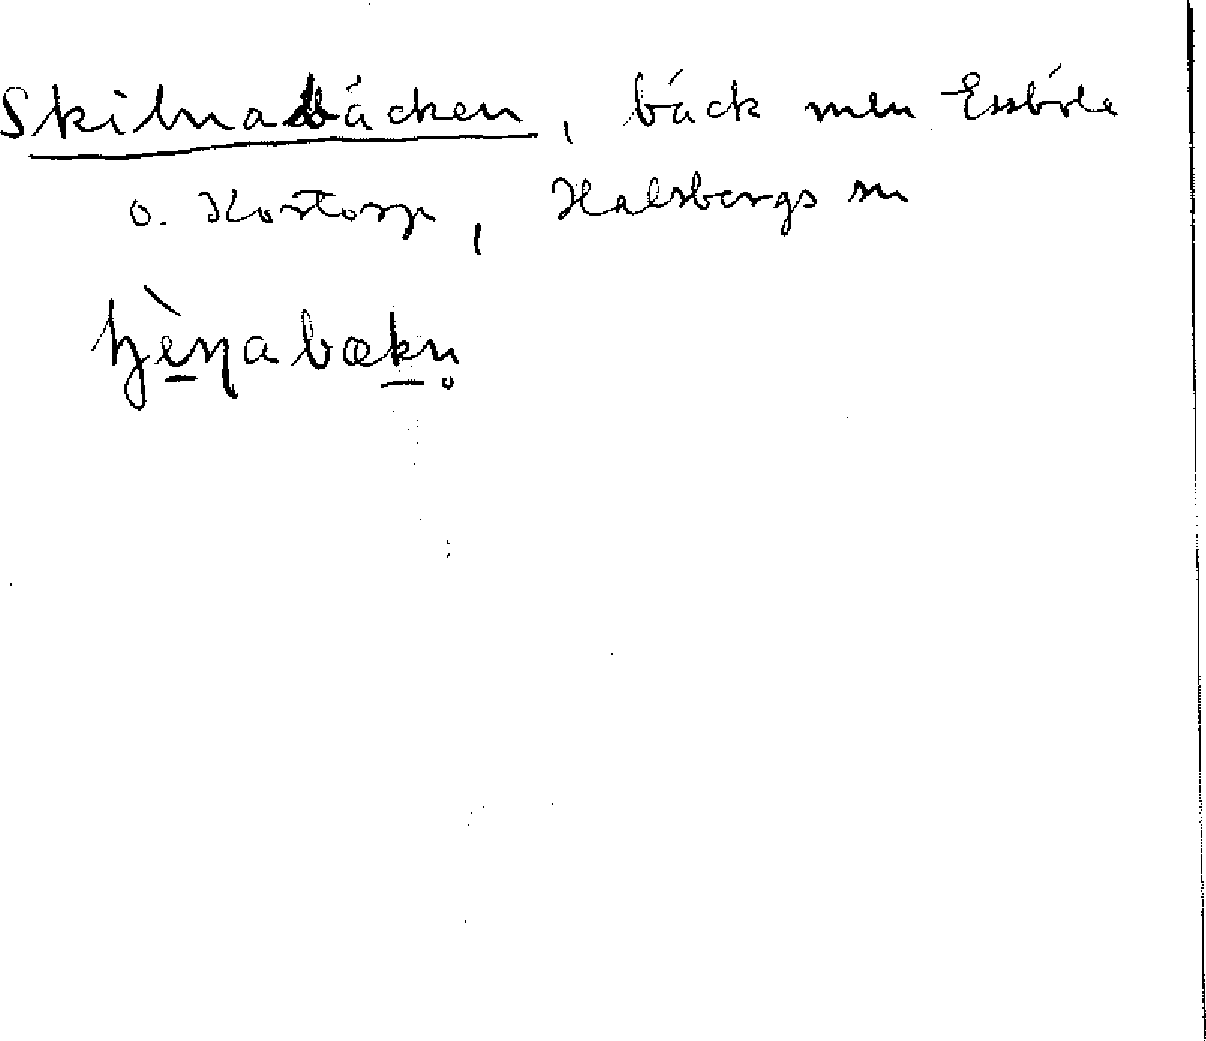 Skilnabäcken, bäck mellan Essböle
o. Kortorp, Halsbergs sn